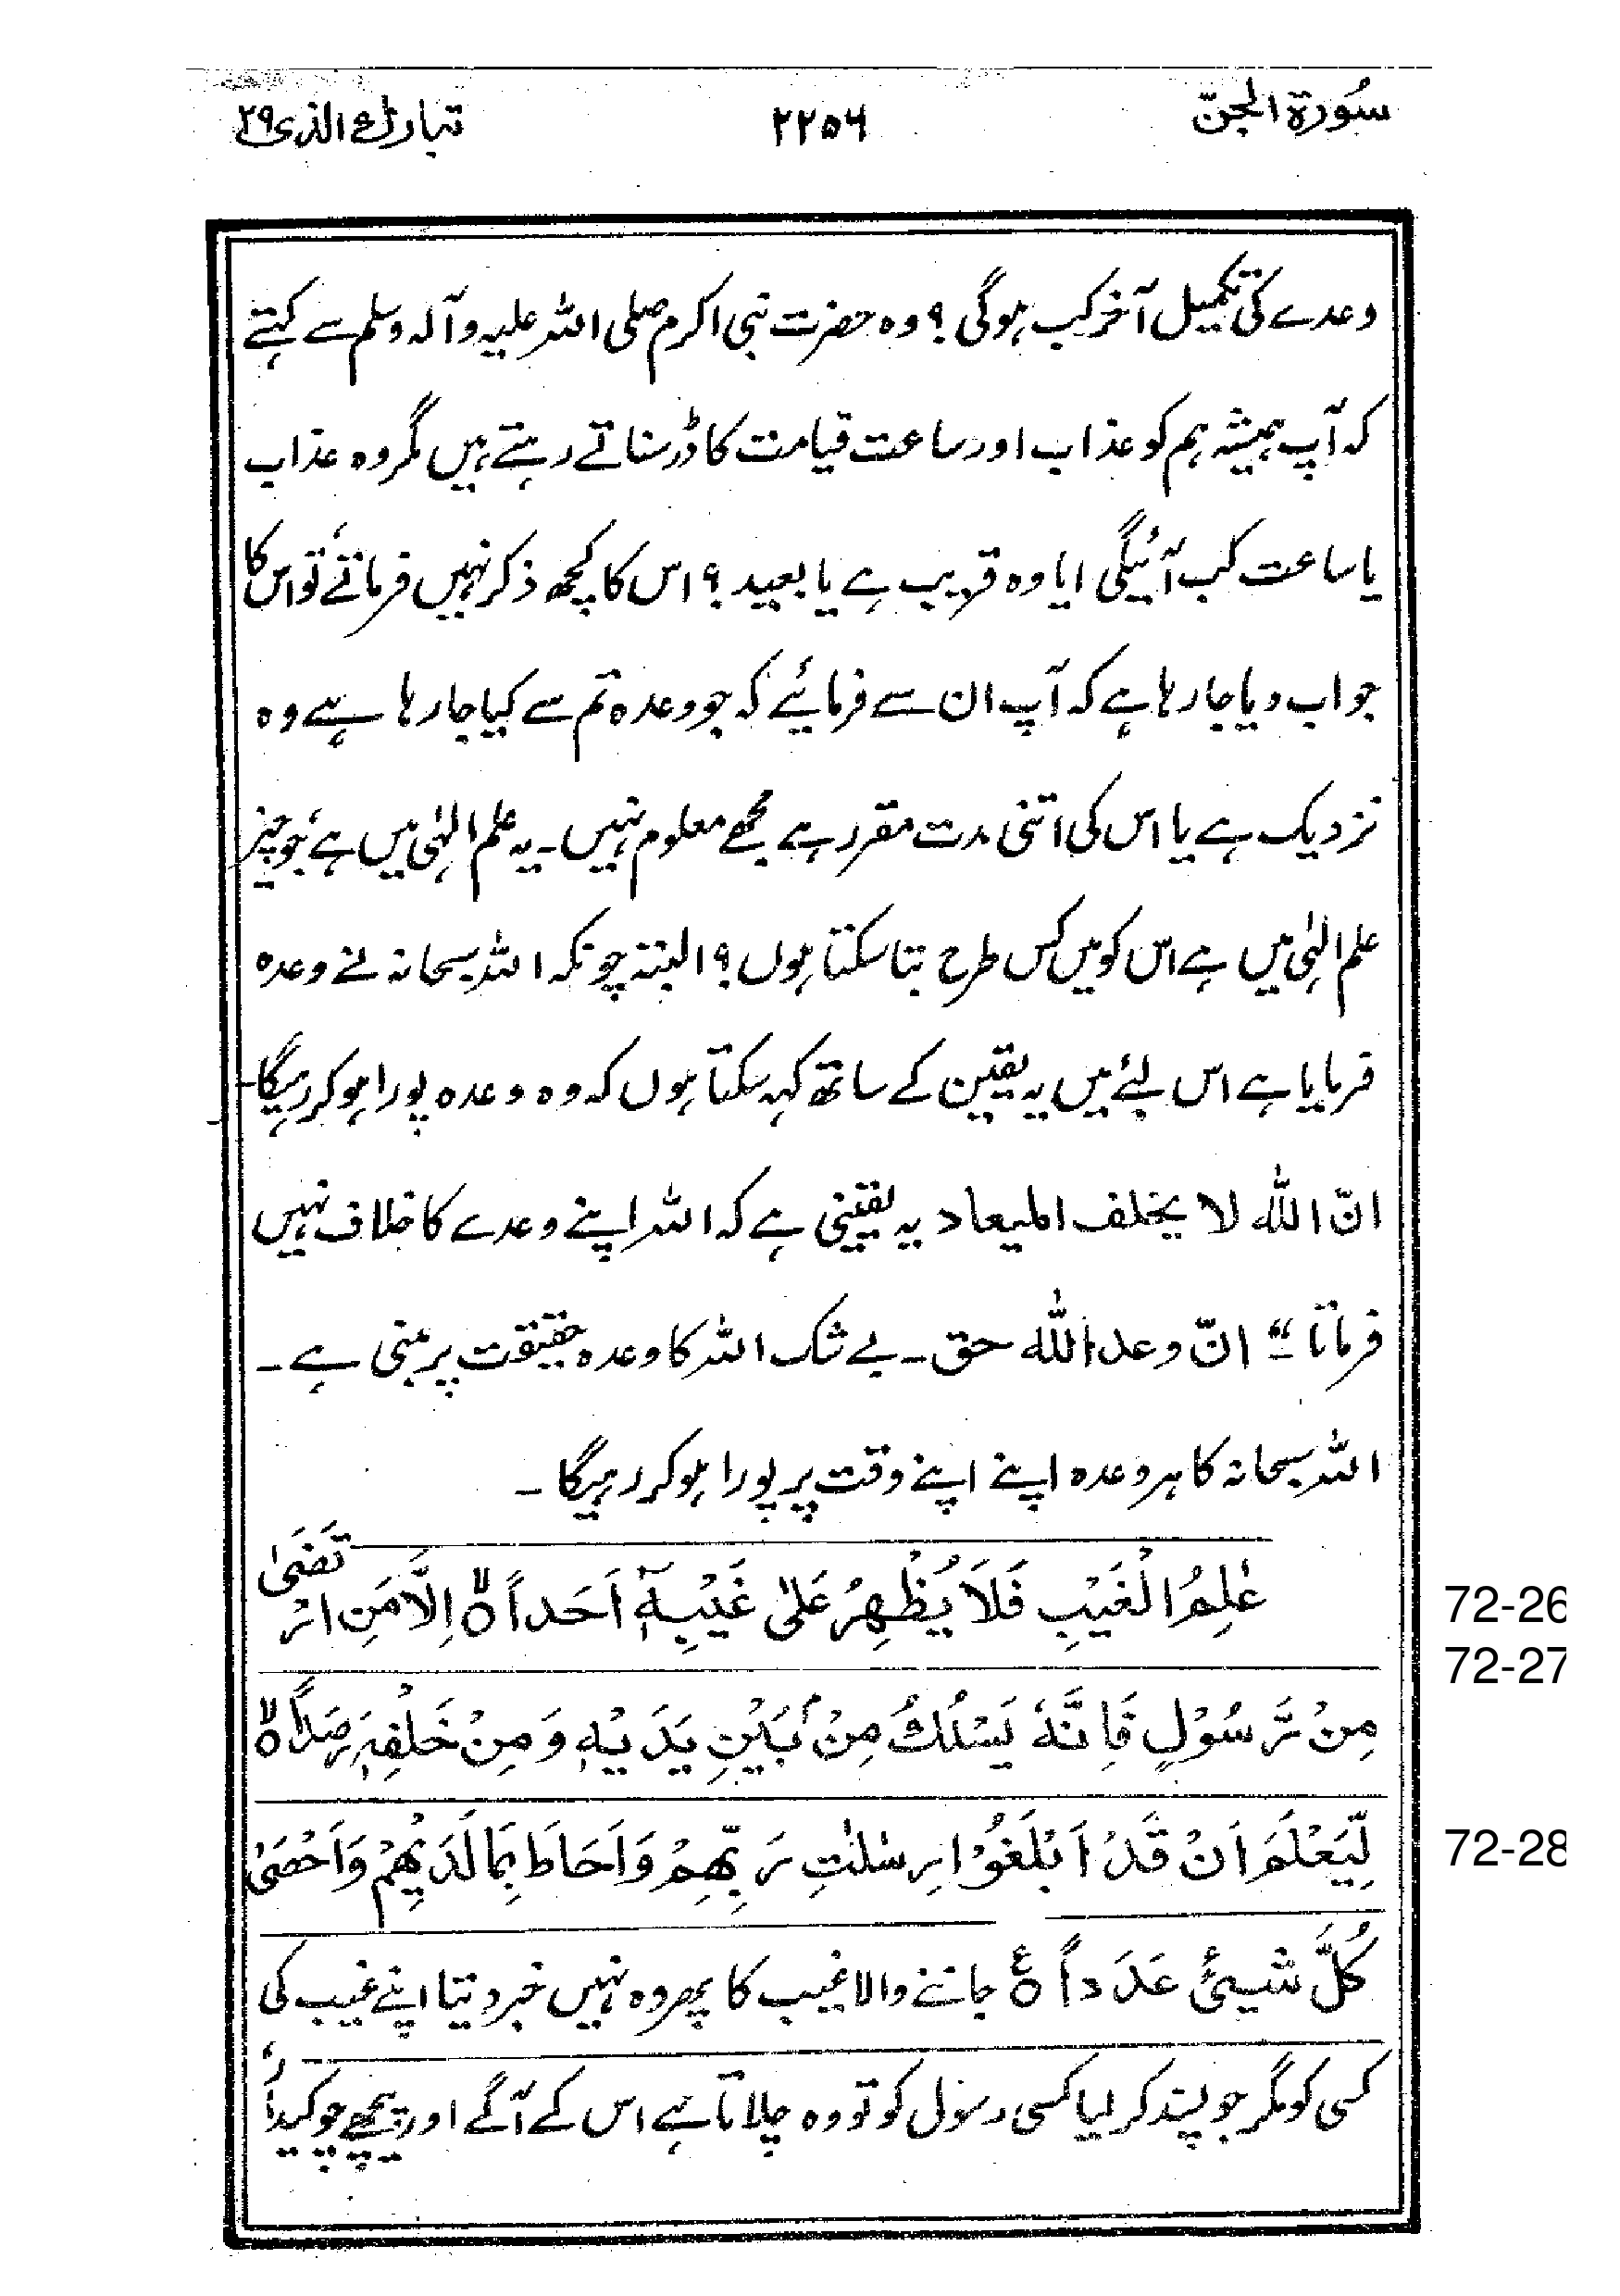 سُورة الجنّ
۲۲۵۶
تبارك الذی ۲۹
وعدے کی تکمیل آخر کب ہوگی؟ وہ حضرت نبی اکرم صلی اللہ علیہ وآلہ وسلم سے کہتے
کہ آپ ہمیشہ ہم کو عذاب اور ساعت قیامت کا ڈر سناتے رہتے ہیں مگر وہ عذاب
یا ساعت کب آئیگی ایا وہ قریب ہے یا بعید؟ اس کا کچھ ذکر نہیں فرماتے، تو اس کا
جواب دیا جا رہا ہے کہ آپ ان سے فرمائیے کہ جو وعدہ تم سے کیا جا رہا ہے وہ
نزدیک ہے یا اس کی اتنی مدت مقرر ہے مجھے معلوم نہیں۔ یہ علم الہٰی میں ہے، جو چیز
علم الہٰی میں ہے اس کو میں کس طرح بتا سکتا ہوں؟ البتہ چونکہ اللہ سبحانہ نے وعدہ
فرمایا ہے اس لئے میں یہ یقین کے ساتھ کہہ سکتا ہوں کہ وہ وعدہ پورا ہو کر رہیگا۔
انّ اللّٰه لا یخلف المیعاد یہ یقینی ہے کہ اللہ اپنے وعدے کا خلاف نہیں
فرماتا۔" انّ وعد اللّٰه حق۔ بے شک اللہ کا وعدہ حقیقت پر مبنی ہے۔
اللہ سبحانہ کا ہر وعدہ اپنے اپنے وقت پر پورا ہو کر رہیگا۔
عٰلِمُ الْغَیْبِ فَلَا یُظْهِرُ عَلٰی غَیْبِهٖۤ اَحَداً ۙ اِلَّا مَنِ ارْتَضٰی
72-26
72-27
مِنْ رَّسُوْلٍ فَاِنَّهٗ یَسْلُكُ مِنْۢ بَیْنِ یَدَیْهِ وَ مِنْ خَلْفِهٖ رَصَداً ۙ
لِّیَعْلَمَ اَنْ قَدْ اَبْلَغُوْا رِسٰلٰتِ رَبِّهِمْ وَاَحَاطَ بِمَا لَدَیْهِمْ وَاَحْصٰی
72-28
كُلَّ شَیئٍ عَدَداً ۠ جاننے والا غیب کا پھر وہ نہیں خبر دیتا اپنے غیب کی
کسی کو مگر جو پسند کر لیا کسی رسول کو تو وہ چلاتا ہے اس کے آگے اور پیچھے چوکیدار